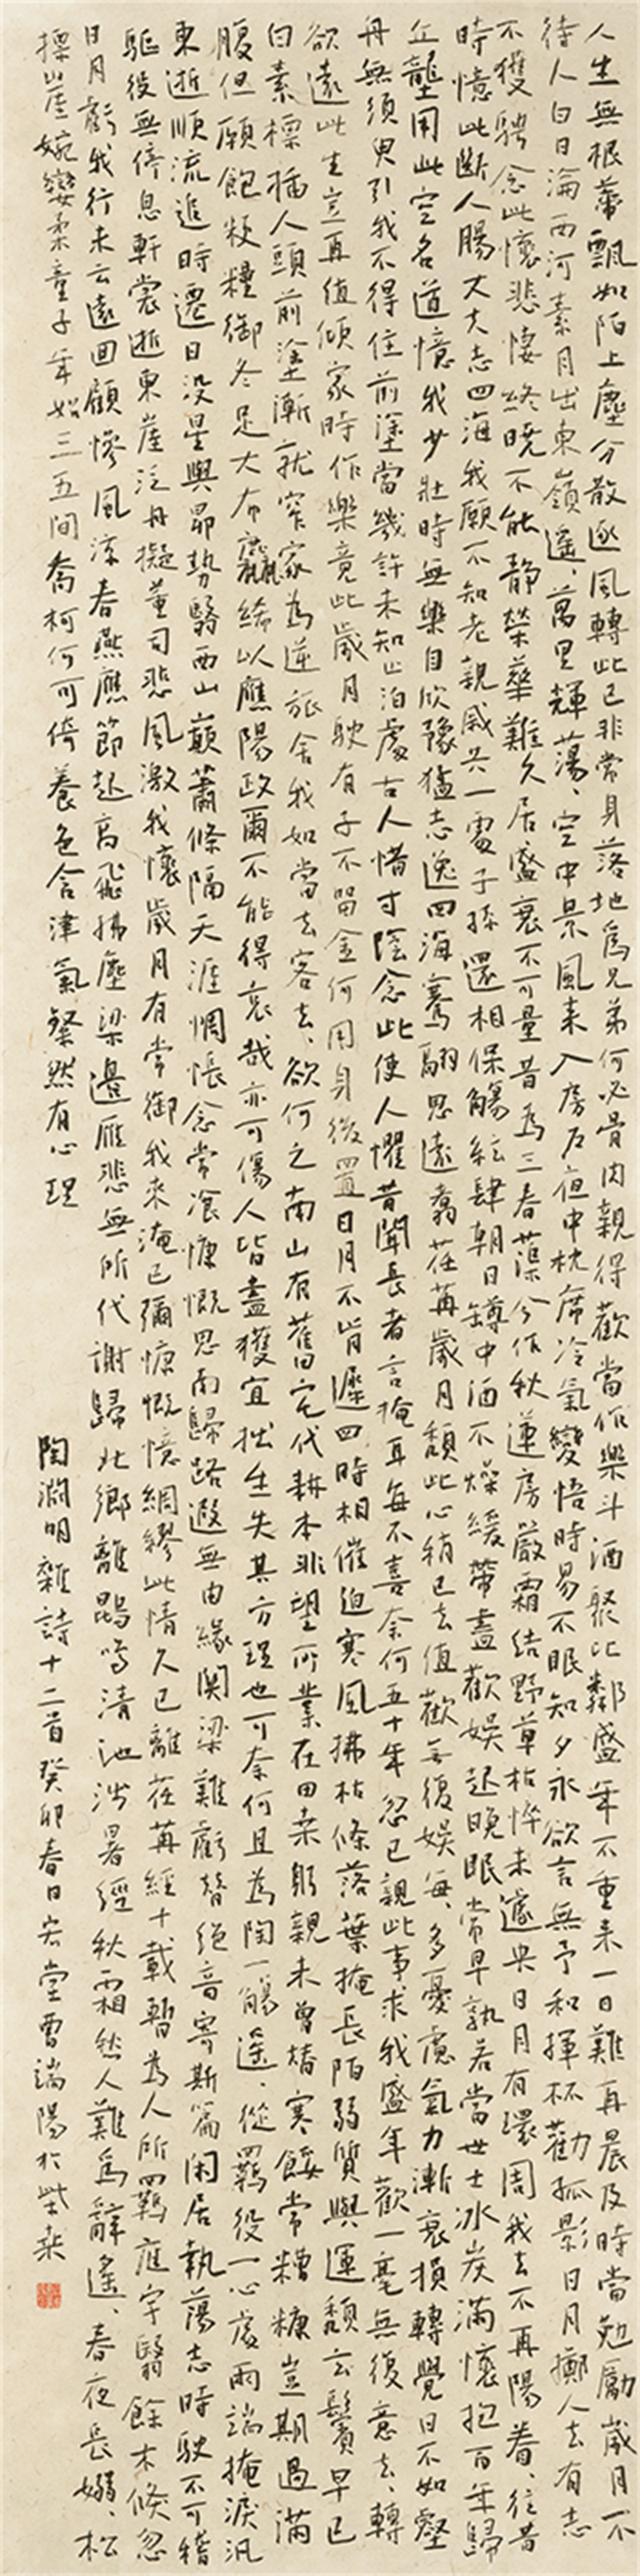 人生無根蒂飄如陌上塵分散逐風轉此已非常身落地為兄弟何必骨肉親得歡當作樂斗酒聚比鄰盛年不重来一日難再晨及時當勉勵歲月不
待人白日淪西河素月出東嶺遥、萬里輝蕩、空中景風来入房户夜中枕席冷氣變悟時易不眠知夕永欲言無予和揮杯勸孤影日月擲人去有志
不獲騁念此懷悲悽終曉不能静榮華難久居盛衰不可量昔為三春蕖今作秋蓮房嚴霜結野草枯悴未遽央日月有環周我去不再陽眷、往昔
時憶此斷人腸丈夫志四海我願不知老親戚共一處子孫還相保觴絃肆朝日罇中酒不燥緩帶盡歡娛起晚眠常早孰若當世士冰炭滿懷抱百年歸
丘壟用此空名道憶我少壯時無樂自欣豫猛志逸四海騫翮思遠翥荏苒歲月頹此心稍已去值歡無復娛每、多憂慮氣力漸衰損轉覺日不如壑
舟無須臾引我不得住前塗當幾許未知止泊處古人惜寸陰念此使人懼昔聞長者言掩耳每不喜奈何五十年忽已親此事求我盛年歡一毫無復意去、轉
欲遠此生豈再值傾家時作樂竟此歲月駛有子不留金何用身後置日月不肯遲四時相催迫寒風拂枯條落葉掩長陌弱質與運頹玄鬢早已
白素標插人頭前塗漸就窄家為逆旅舍我如當去客去、欲何之南山有舊宅代耕本非望所業在田桑躬親未曾替寒餒常糟糠豈期過滿
腹但願飽粳糧御冬足大布麤絺以應陽政爾不能得哀、哉亦可傷人皆盡獲宜拙生失其方理也可奈何且為陶一觴遥、從羈役一心處兩端掩淚汎
東逝順流追時遷日没星與昴勢翳西山巔蕭條隔天涯惆悵念常飡慷慨思南歸路遐無由緣関梁難虧替絕音寄斯篇閑居執蕩志時駛不可稽
驅役無停息軒裳逝東崖泛舟擬董司悲風激我懷歲月有常御我来淹已彌慷慨憶綢繆此情久已離荏苒經十載暫為人所羈庭宇翳餘木倏忽
日月虧我行未云遠回顧慘風凉春燕應節起高飛拂塵梁邊雁悲無所代謝歸北鄉離鵾鳴清池涉暑經秋霜愁人難為辭遥、春夜長嫋、松
標崖婉孌柔童子年始三五間喬柯何可倚養色含津氣粲然有心理
陶淵明雜詩十二首癸卯春日宕堂曹端陽於柴桑